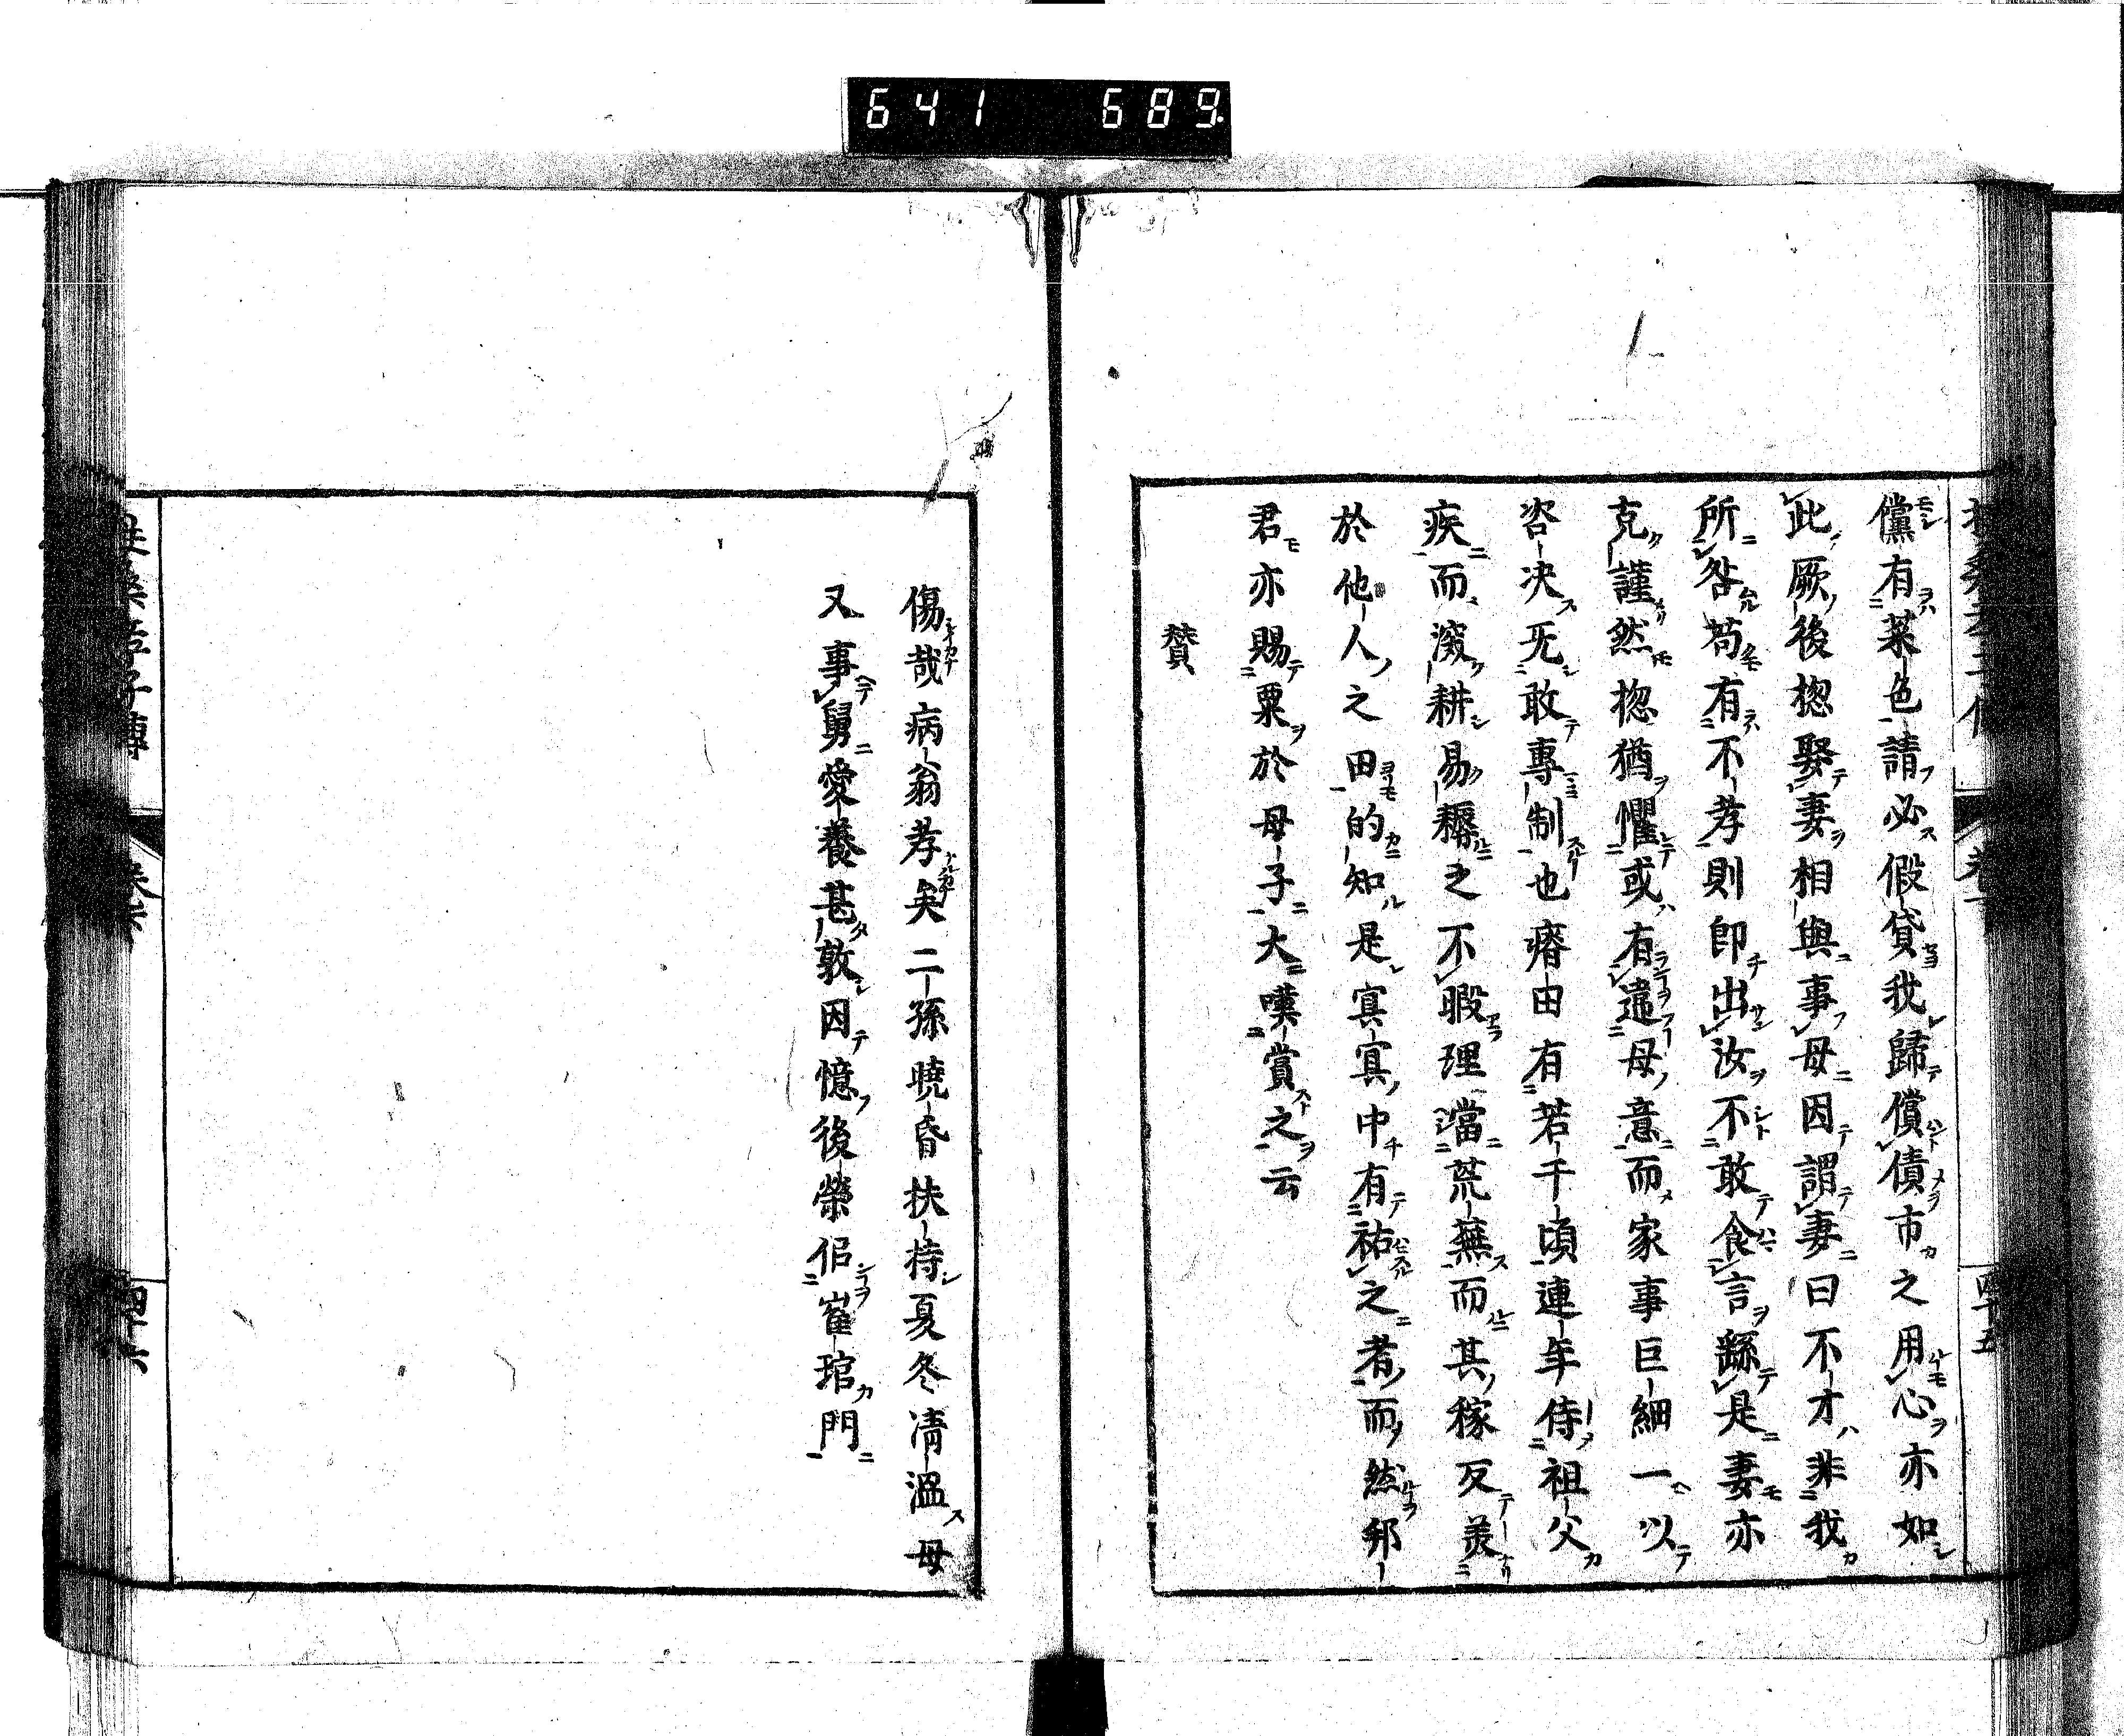 641 689.
儻有菜色請必假貸我歸償債市之用心亦如
此厥後揔娶妻相與事母因謂妻曰不才非我
所咎苟有不孝則即出汝不敢食言繇是妻亦
克謹然揔猶懼或有違母意而家事巨細一以
咨决无敢專制也瘠田有若干頃連年侍祖父
疾而滚耕易耨之不暇理當荒蕪而其稼反羙
於他人之田的知是寘寘中有祐之者而然邦
君亦賜粟於母子大嘆賞之云
贊
傷哉病翁孝矣二孫曉昏扶持夏冬凊溫母
又事舅愛養甚敦因憶後榮侶崔琯門
孝子傳
四十六